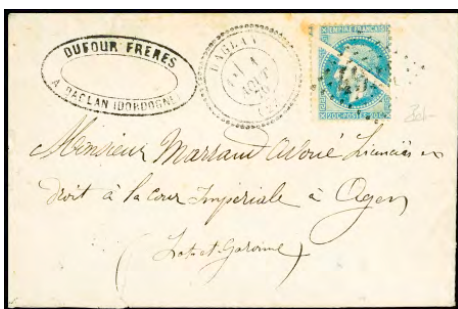 DUFOUR FRERES
A DAGLAN (DORDOGNE)
DAGLAN
EMPIRE FRANÇAIS
20C POSTES 20C
Monsieur Marraud Avoué Licencié en
droit à la cour Impériale à Agen
(Lot et Garonne)